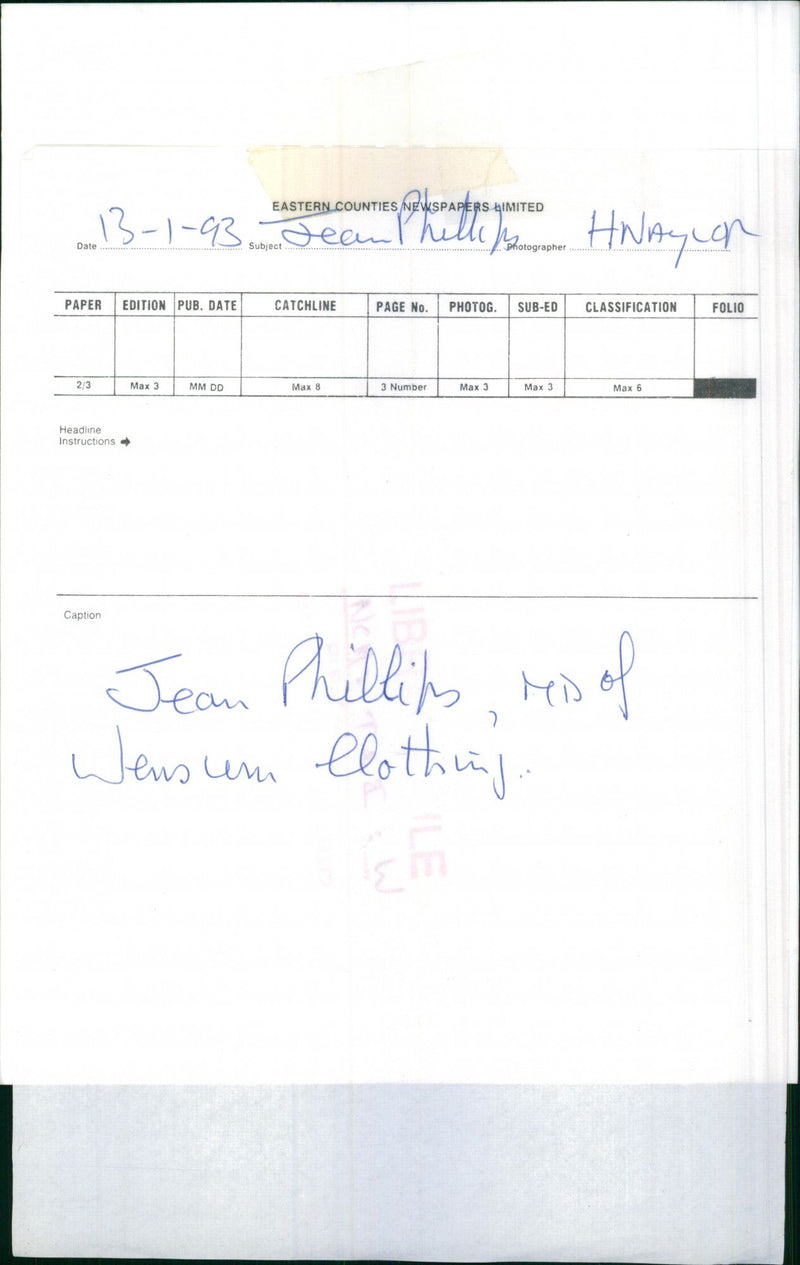 EASTERN COUNTIES NEWSPAPERS LIMITED
Date 13-1-93 Subject Jean Phillips Photographer HNAYLOR
PAPER EDITION PUB. DATE CATCHLINE PAGE No. PHOTOG. SUB-ED CLASSIFICATION FOLIO
2/3 Max 3 MM DD Max 8 3 Number Max 3 Max 3 Max 6
Headline
Instructions ➔
Caption
Jean Phillips, MD of
Wensum Clothing.